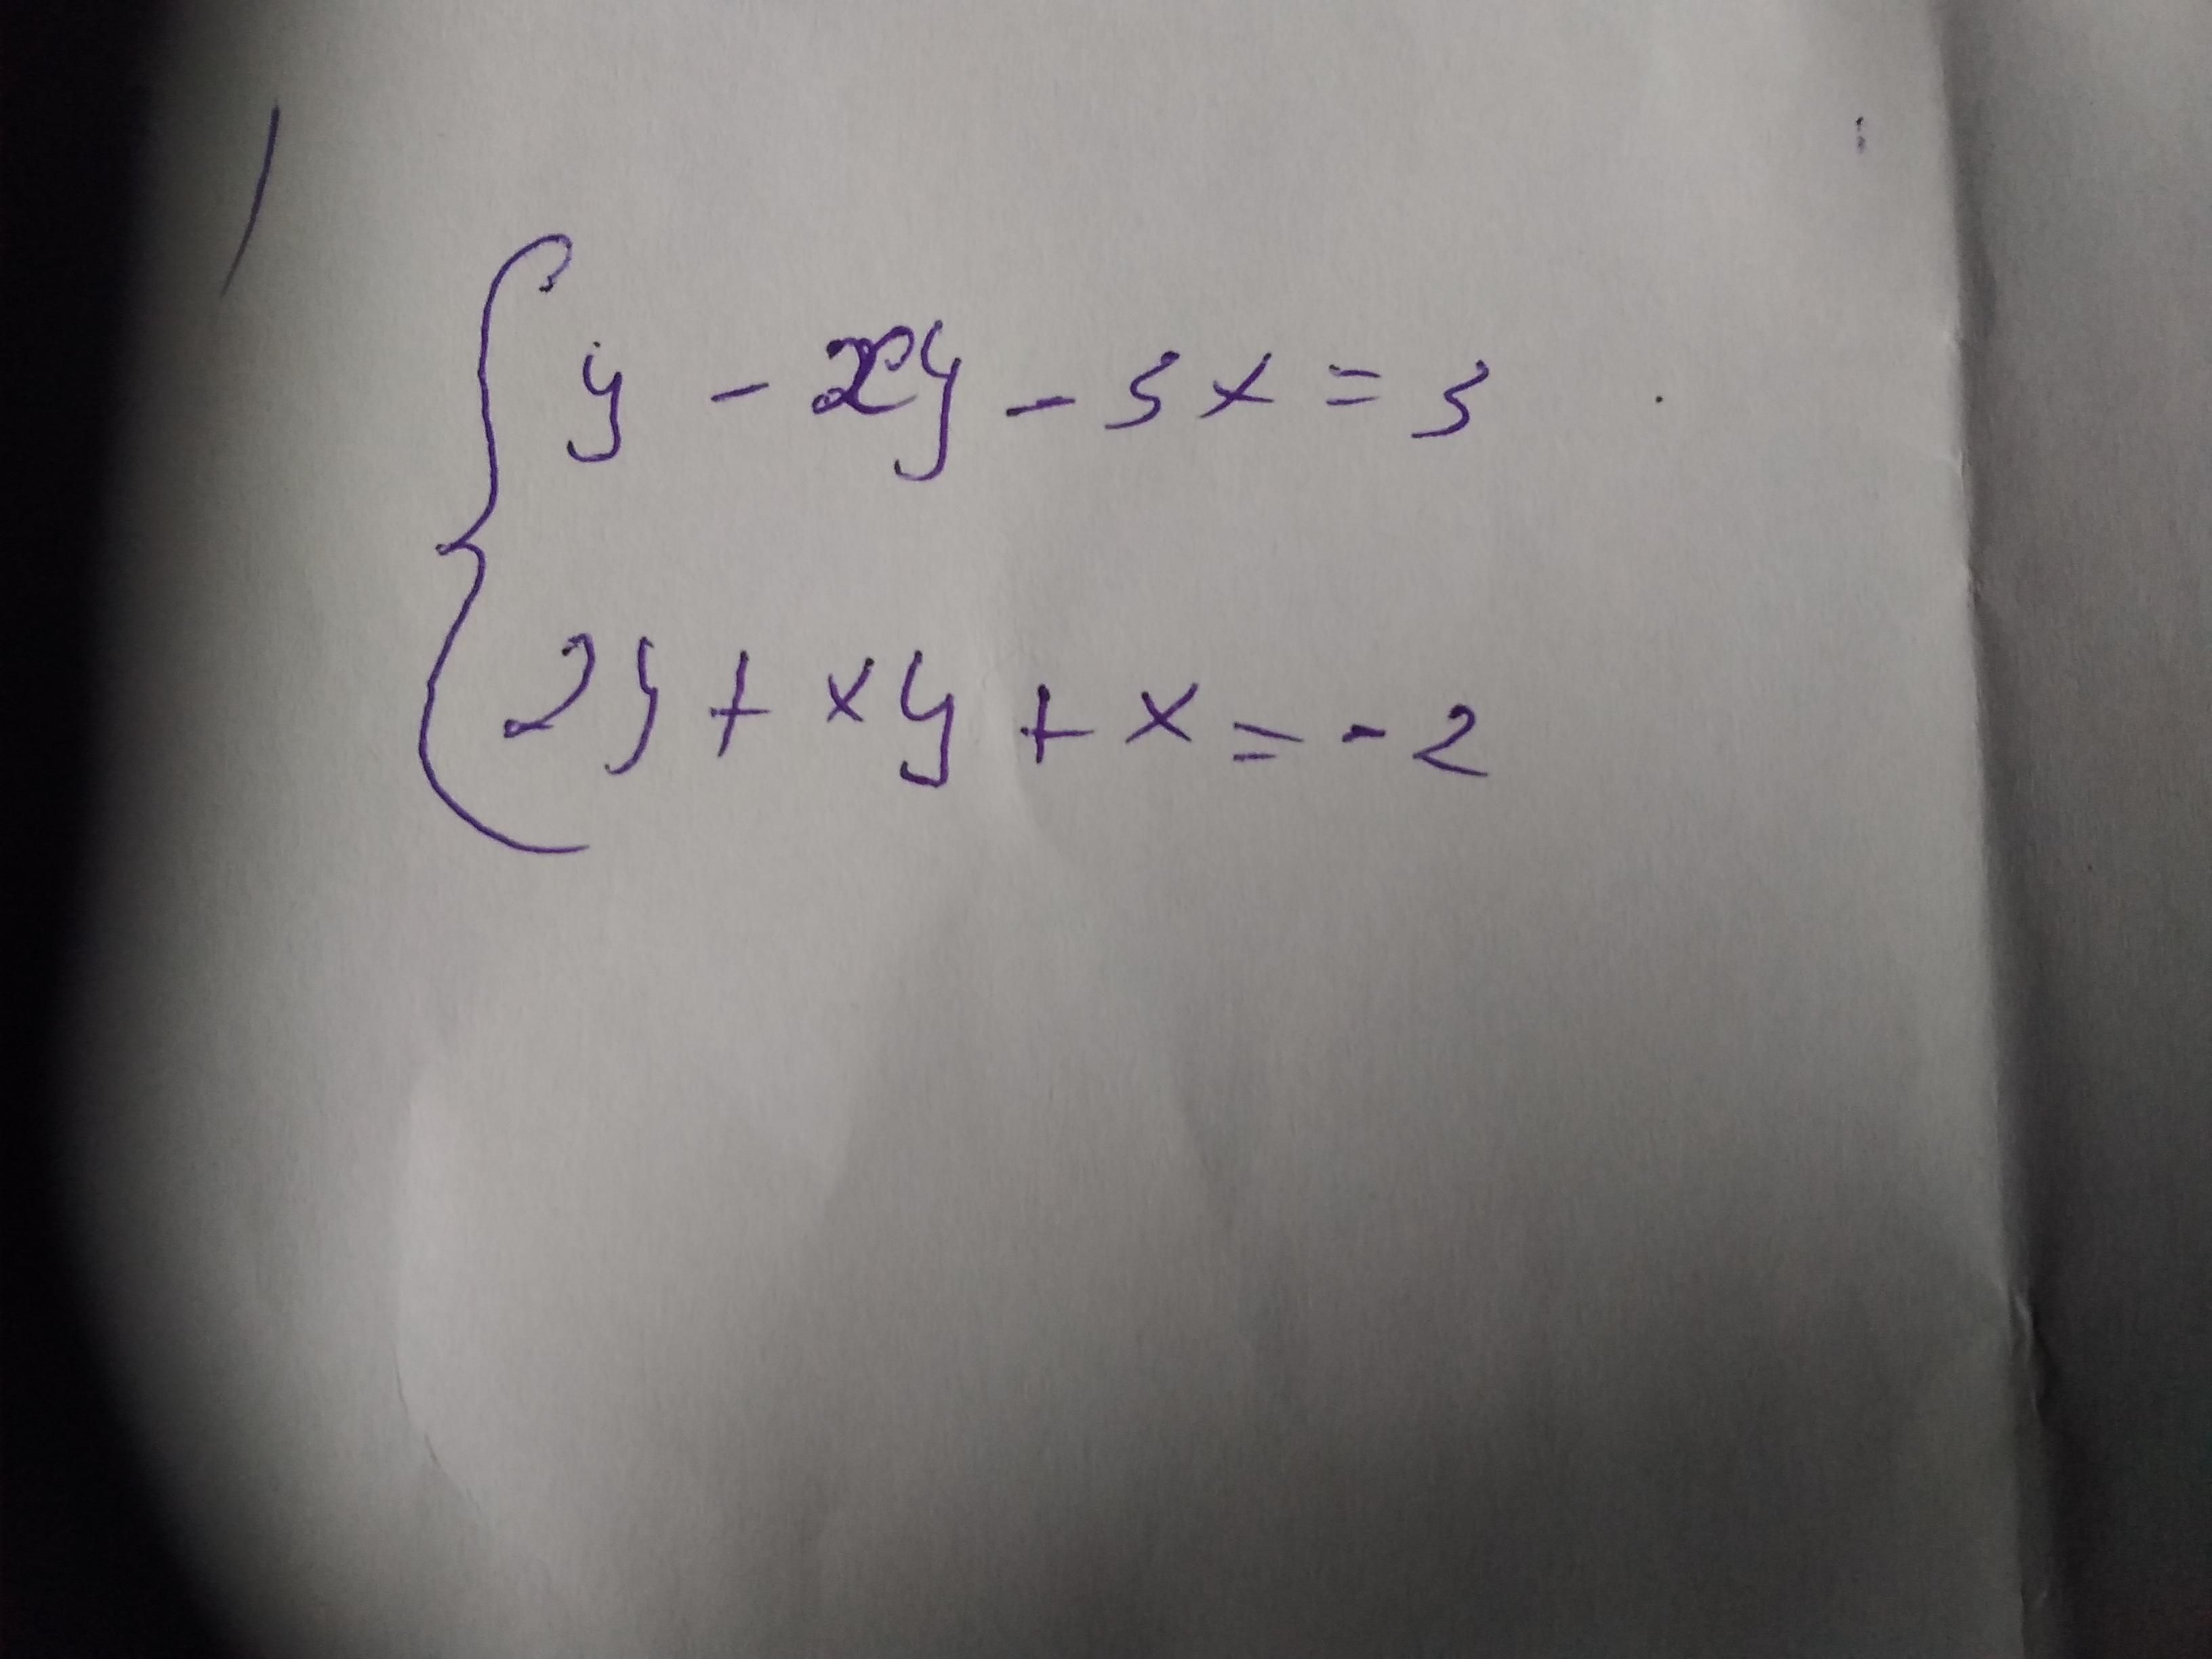 { y - xy - 3x = 3
2y + xy + x = -2